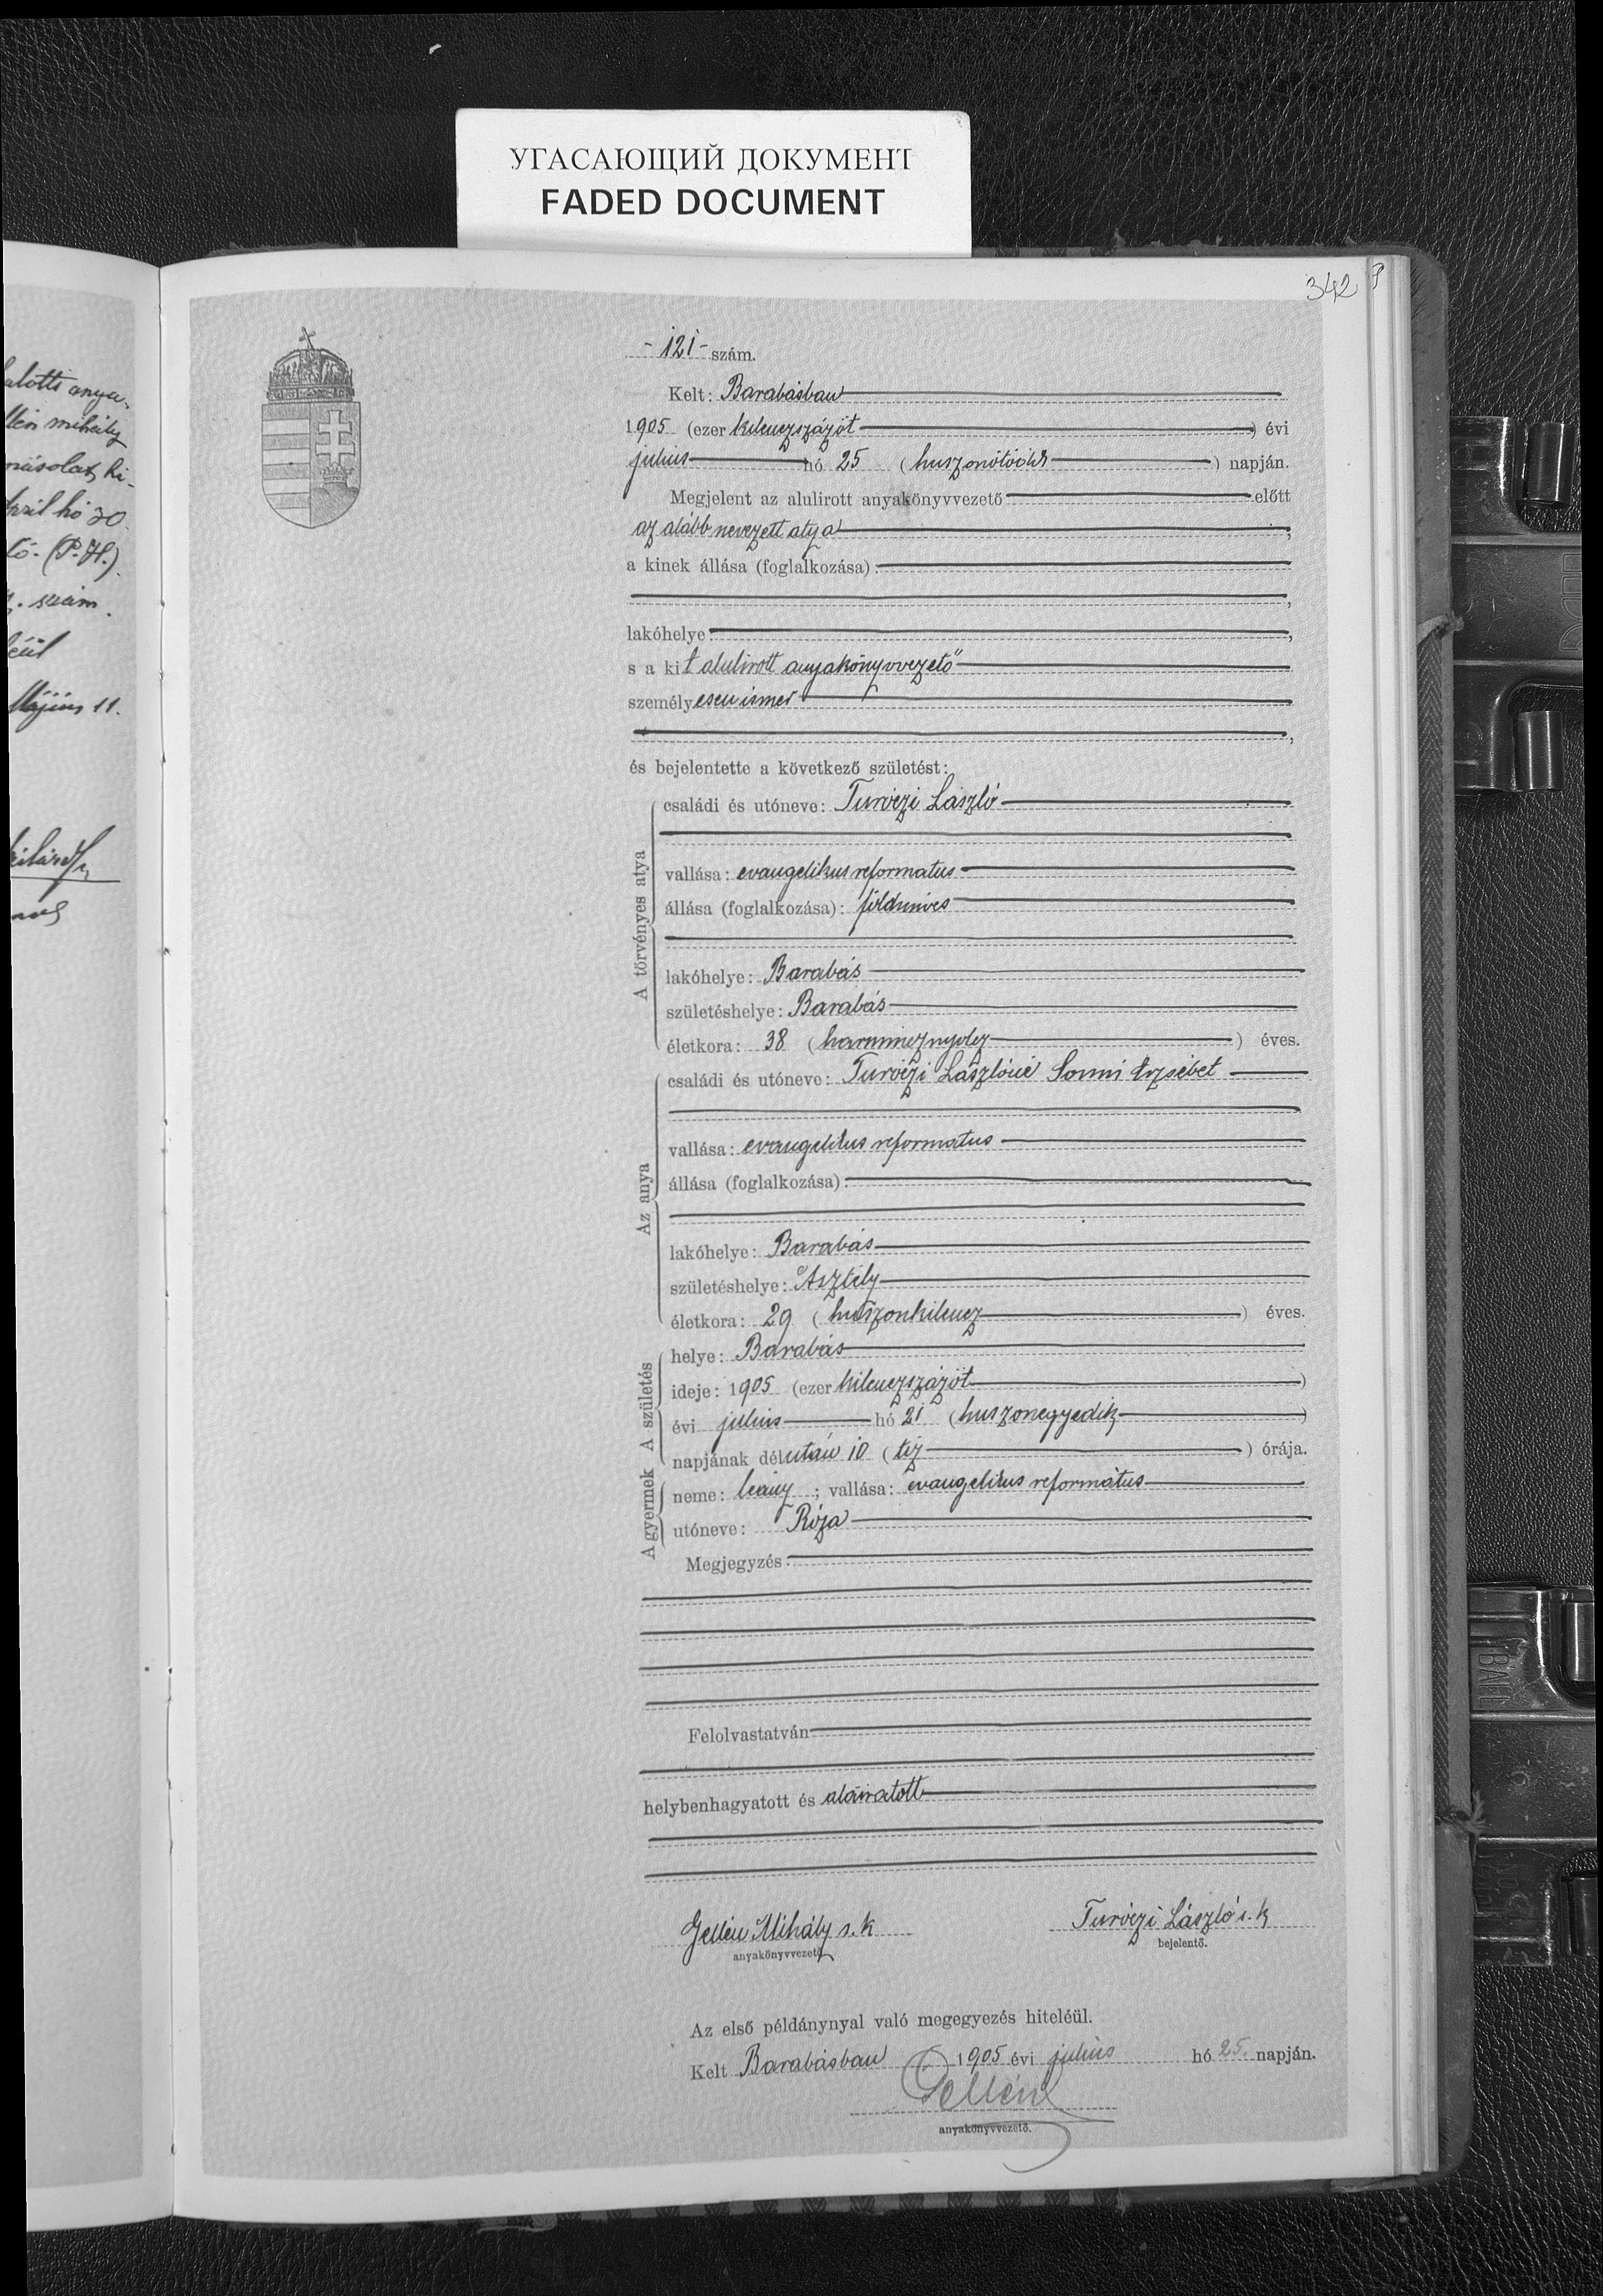 УГАСАЮЩИЙ ДОКУМЕНТ
FADED DOCUMENT
342
-121- szám.
Kelt: Barabásban
1905 (ezer kilenczszázöt) évi
julius hó 25 (huszonötödik) napján.
Megjelent az alulirott anyakönyvvezető előtt
az alább nevezett atya,
a kinek állása (foglalkozása):
,
lakóhelye:,
s a kit alulirott anyakönyvvezető
személyesen ismer
,
és bejelentette a következő születést:
A törvényes atya
családi és utóneve: Turóczi László
vallása: evangelikus reformatus
állása (foglalkozása): földmives
lakóhelye: Barabás
születéshelye: Barabás
életkora: 38 (harmincznyolcz) éves.
Az anya
családi és utóneve: Turóczi Lászlóné Erzsébet
vallása: evangelikus reformatus
állása (foglalkozása):
lakóhelye: Barabás
születéshelye: Asztély
életkora: 29 (huszonkilencz) éves.
A születés
helye: Barabás
ideje: 1905 (ezer kilenczszázöt)
évi julius hó 21 (huszonegyedik)
napjának délután 10 (tiz) órája.
A gyermek
neme: leány; vallása: evangelikus református
utóneve: Róza
Megjegyzés:
Felolvastatván
helybenhagyatott és aláiratott
Gellén Mihály s.k
anyakönyvvezető
Turóczi László s.k
bejelentő.
Az első példánynyal való megegyezés hiteléül.
Kelt Barabásban 1905 évi julius hó 25. napján.
Gellén
anyakönyvvezető.
mihály
hó 30
(P.H.)
szám
Május 11.